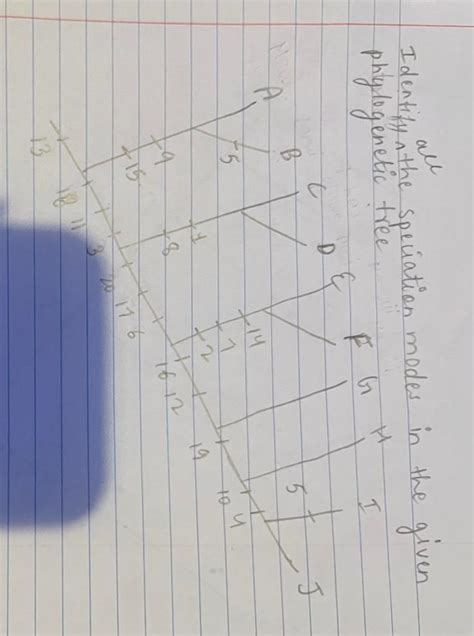 Identify all the speciation modes in the given
phylogenetic tree
A
B
C
D
E
F
G
H
I
J
5
9
15
1
8
14
7
2
5
13
18
11
3
20
17
6
16
12
19
10
4